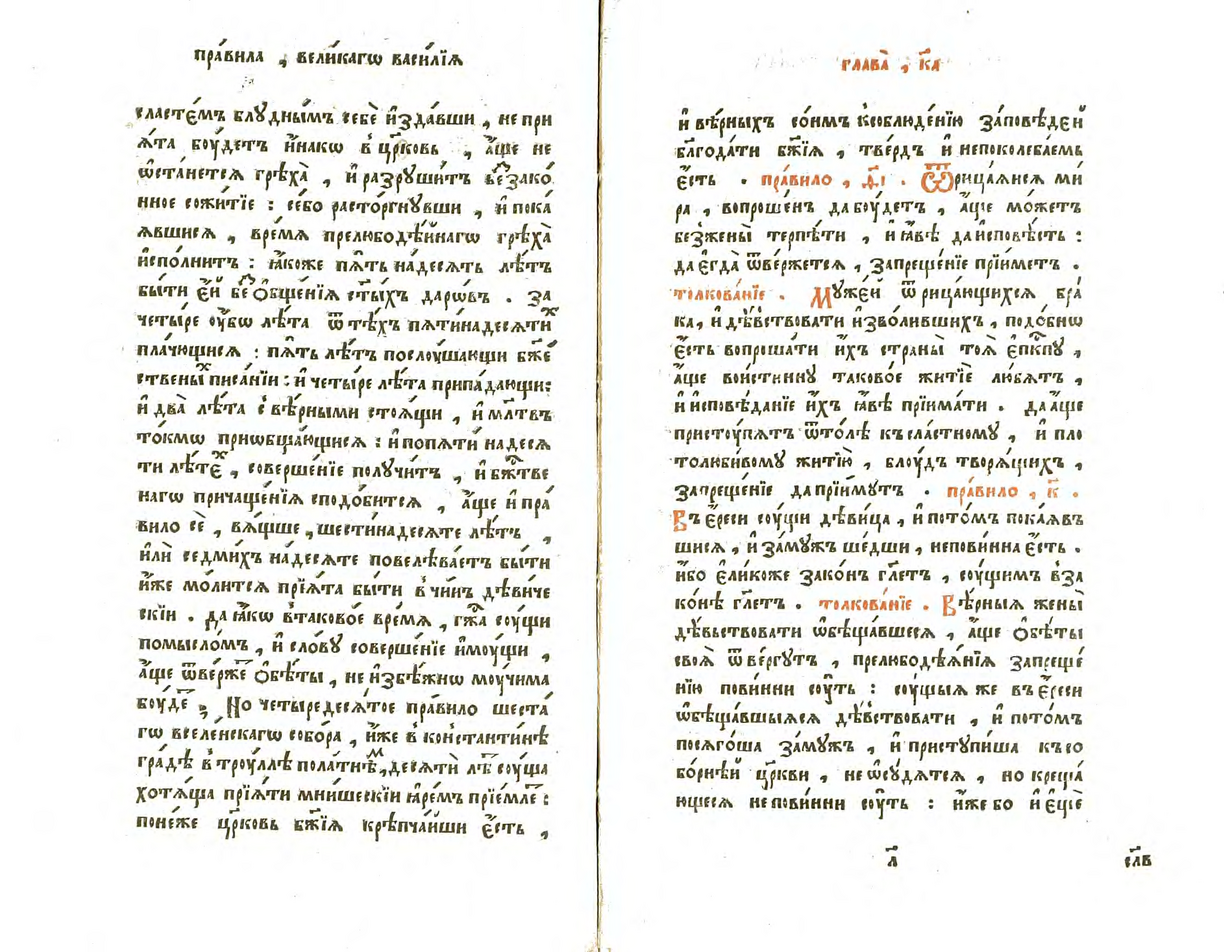 пра́вила , вели́кагѡ васи́лїѧ
сласте́мъ блꙋ́дны́мъ себѐ и҆зда́вши , не при
ѧ́та боу́детъ и҆́накѡ в цр҃ковь , а҆́ще не
ѡ҆ста́нетсѧ грѣха̀ , и҆ разрꙋши́тъ беззако́
нное сожи́тїе : се́бо расто́ргнꙋвши , и҆ пока́
ѧвшисѧ , вре́мѧ прелюбодѣ́йнагѡ грѣха̀
и҆спо́лнитъ : ꙗ҆́коже пѧ́ть на́десѧть лѣ́тъ
бы́ти є҆́й беꙁ ѻ҆бще́нїѧ ст҃ы́хъ даро́въ . За
четы́ре оу҆́бѡ лѣ́та ѿ тѣ́хъ пѧти́на́десѧтиⷯ
пла́чющисѧ : пѧ́ть лѣ́тъ послоу́шающи бж҃е
ственыⷯ писа́нїи : и҆ четы́ре лѣ́та припа́дающи :
и҆ два̀ лѣ́та с вѣ́рными стоѧ́щи , и҆ мл҃твъ
то́кмѡ приѡбща́ющисѧ : и҆ попѧ́ти на́десѧ
ти лѣ́теⷯ , соверше́нїе полꙋчи́тъ , и҆ бжⷭ҇тве
нагѡ причаще́нїѧ сподо́битсѧ , а҆́ще и҆ пра́
вило сѐ , вѧ́щше , шести́на́десѧте лѣ́тъ ,
и҆лѝ седми́хъ на́десѧте повелѣва́етъ бы́ти
и҆́же мо́литсѧ прїѧ́та бы́ти в чи́нъ дѣ́виче
скїи . да ꙗ҆́кѡ в таково́е вре́мѧ , гж҃а соу́щи
по́мысло́мъ , и҆ сло́вꙋ соверше́нїе и҆моу́щи ,
а҆́ще ѿве́рже ѻ҆бѣ́ты , не и҆збѣ́жнѡ моу́чима
боу́деⷮ . Но четы́редесѧ́тое пра́вило шеста́
гѡ вселе́нскагѡ собо́ра , и҆́же в ко́нстанти́нѣ
гра́дѣ в троу́ллѣ пола́тнѣⷨ , десѧти̇ лѣⷮ соу́ща
хотѧ́ща прїѧ́ти мни́шескїи ꙗ҆ре́мъ прїе́млеⷮ :
поне́же цр҃ковь бж҃їѧ крѣпча́йши є҆́сть ,
глава̀ , к҃а
и҆ вѣ́рныхъ со́нмъ к соблюде́нїю за́повѣдей
бл҃года́ти бж҃їѧ , тве́рдъ и҆ непоколеба́емъ
є҆́сть . пра́вило , ѳ҃і . Ѿрица́ѧисѧ ми́
ра , вопроше́нъ да боу́детъ , а҆́ще мо́жетъ
без жены̀ терпѣ́ти , и҆ ꙗ҆́вѣ да и҆сповѣ́сть :
да є҆гда̀ ѿве́ржетсѧ , запреще́нїе прїи́метъ .
толкова́нїе . Мꙋже́й ѿрица́ющихсѧ бра́
ка , и҆ дѣ́вствовати и҆зво́ливших , подо́бнѡ
є҆́сть вопроша́ти и҆́хъ страны̀ тоѧ̀ є҆пⷭ҇кпꙋ ,
а҆́ще вои́стиннꙋ таково́е житїѐ лю́бѧтъ ,
и҆ и҆сповѣ́данїе и҆́хъ ꙗ҆́вѣ прїима́ти . да а҆́ще
пристоу́пѧтъ ѿто́лѣ къ сла́стномꙋ , и҆ пло
толюби́вомꙋ житїю̀ , блоу́дъ творѧ́щихъ ,
запреще́нїе да прїи́мꙋтъ . пра́вило , к҃ .
Въ є҆́реси соу́щи дѣви́ца , и҆ пото́мъ пока́ѧв
шисѧ , и҆ за́мꙋжъ ше́дши , непови́нна є҆́сть .
и҆́бо є҆ли́коже зако́нъ гл҃етъ , соу́щимъ в за
ко́нѣ гл҃етъ . толкова́нїе . Вѣ́рныѧ жены̀
дѣ́вьствовати ѡ҆бѣща́вшесѧ , а҆́ще ѻ҆бѣ́ты
своѧ̀ ѿве́ргꙋтъ , прелюбодѣѧ́нїѧ запреще́
нїю пови́нни соу́ть : соу́щыѧ же въ є҆́реси
ѡ҆бѣща́вшыѧсѧ дѣ́вствовати , и҆ пото́мъ
посѧго́ша за́мꙋжъ , и҆ пристꙋпи́ша къ со
бо́рнѣй цр҃кви , не ѡ҆сꙋ́дѧтсѧ , но креща́
ющесѧ непови́нни соу́ть : и҆́же бо и҆ є҆щѐ
л҃
сл҃в